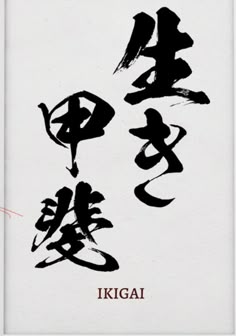 生き
甲斐
IKIGAI